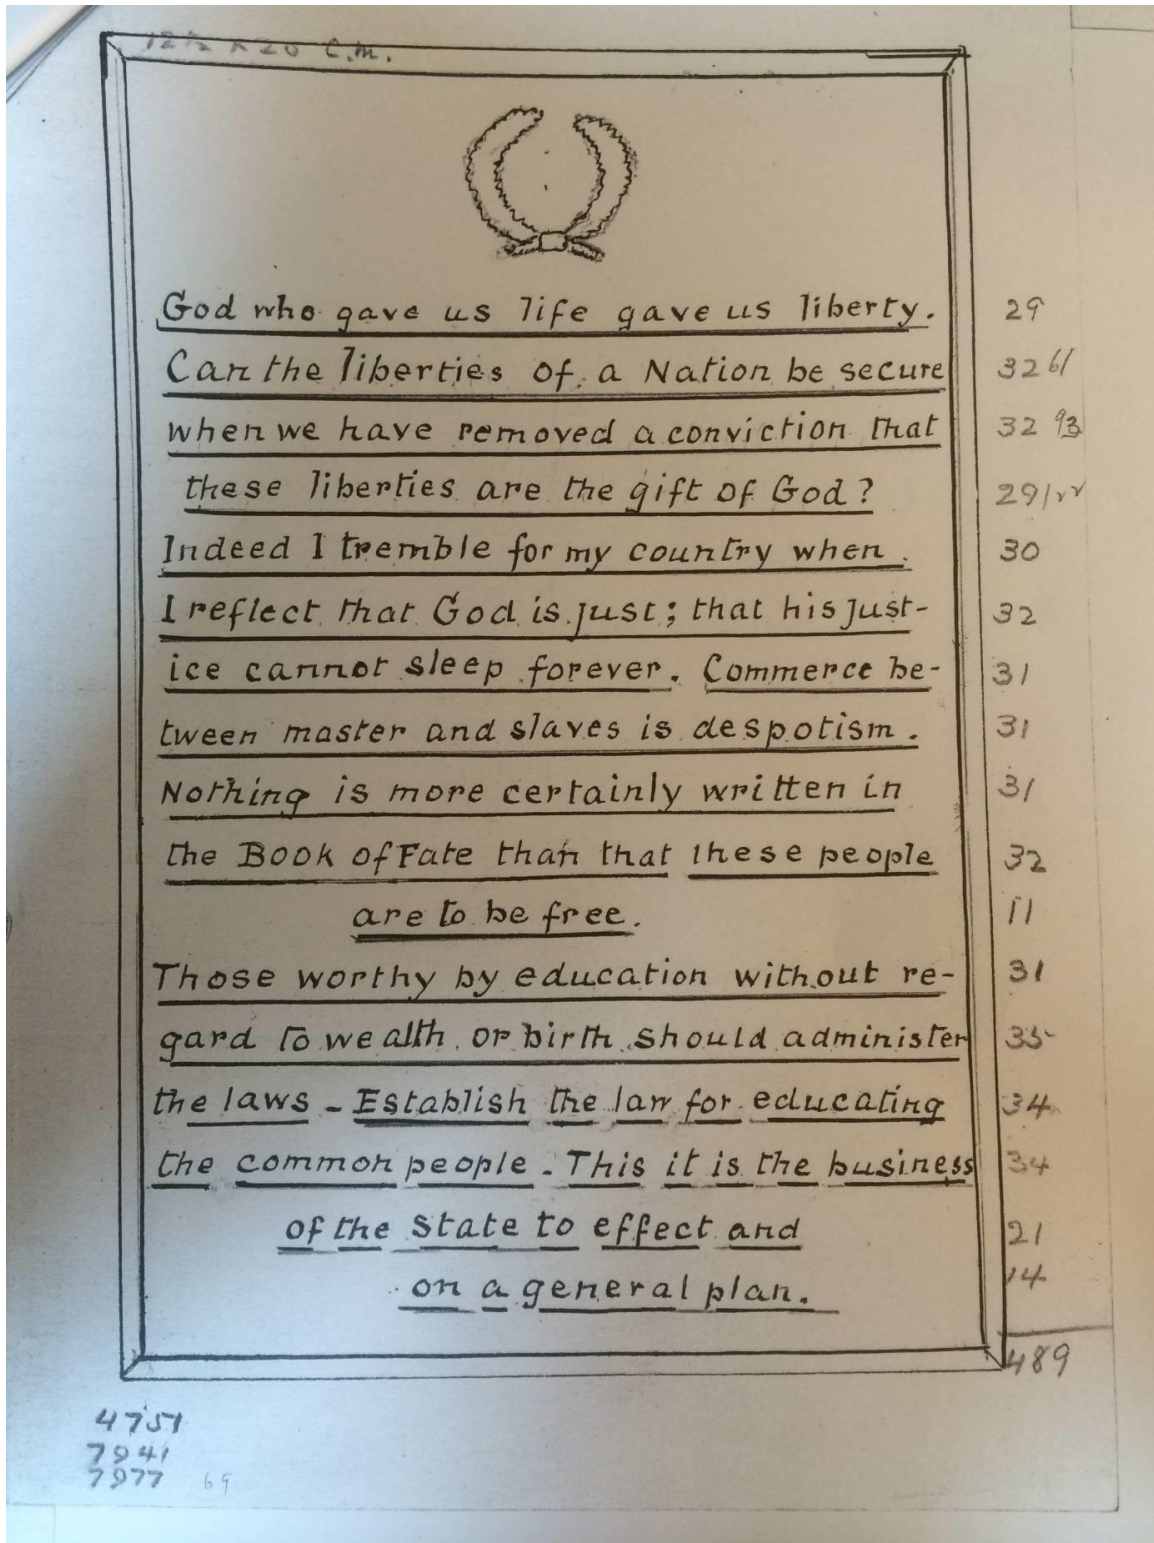 12½ x 20 c.m.
God who gave us life gave us liberty. 29
Can the liberties of a Nation be secure 32 61
when we have removed a conviction that 32 93
these liberties are the gift of God? 29
Indeed I tremble for my country when 30
I reflect that God is just; that his just- 32
ice cannot sleep forever. Commerce be- 31
tween master and slaves is despotism. 31
Nothing is more certainly written in 31
the Book of Fate than that these people 32
are to be free. 11
Those worthy by education without re- 31
gard to wealth or birth should administer 35
the laws - Establish the law for educating 34
the common people - This it is the business 34
of the state to effect and 21
on a general plan. 14
489
4751
7941
7977 69